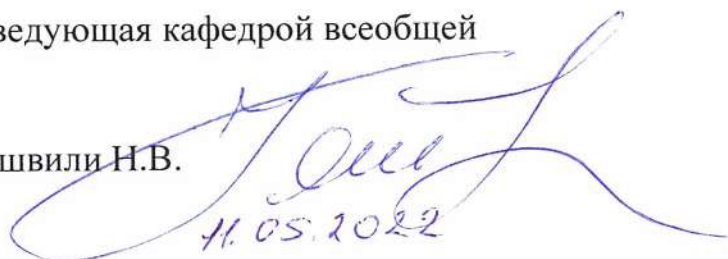 ведующая кафедрой всеобщей
швили Н.В.
11.05.2022